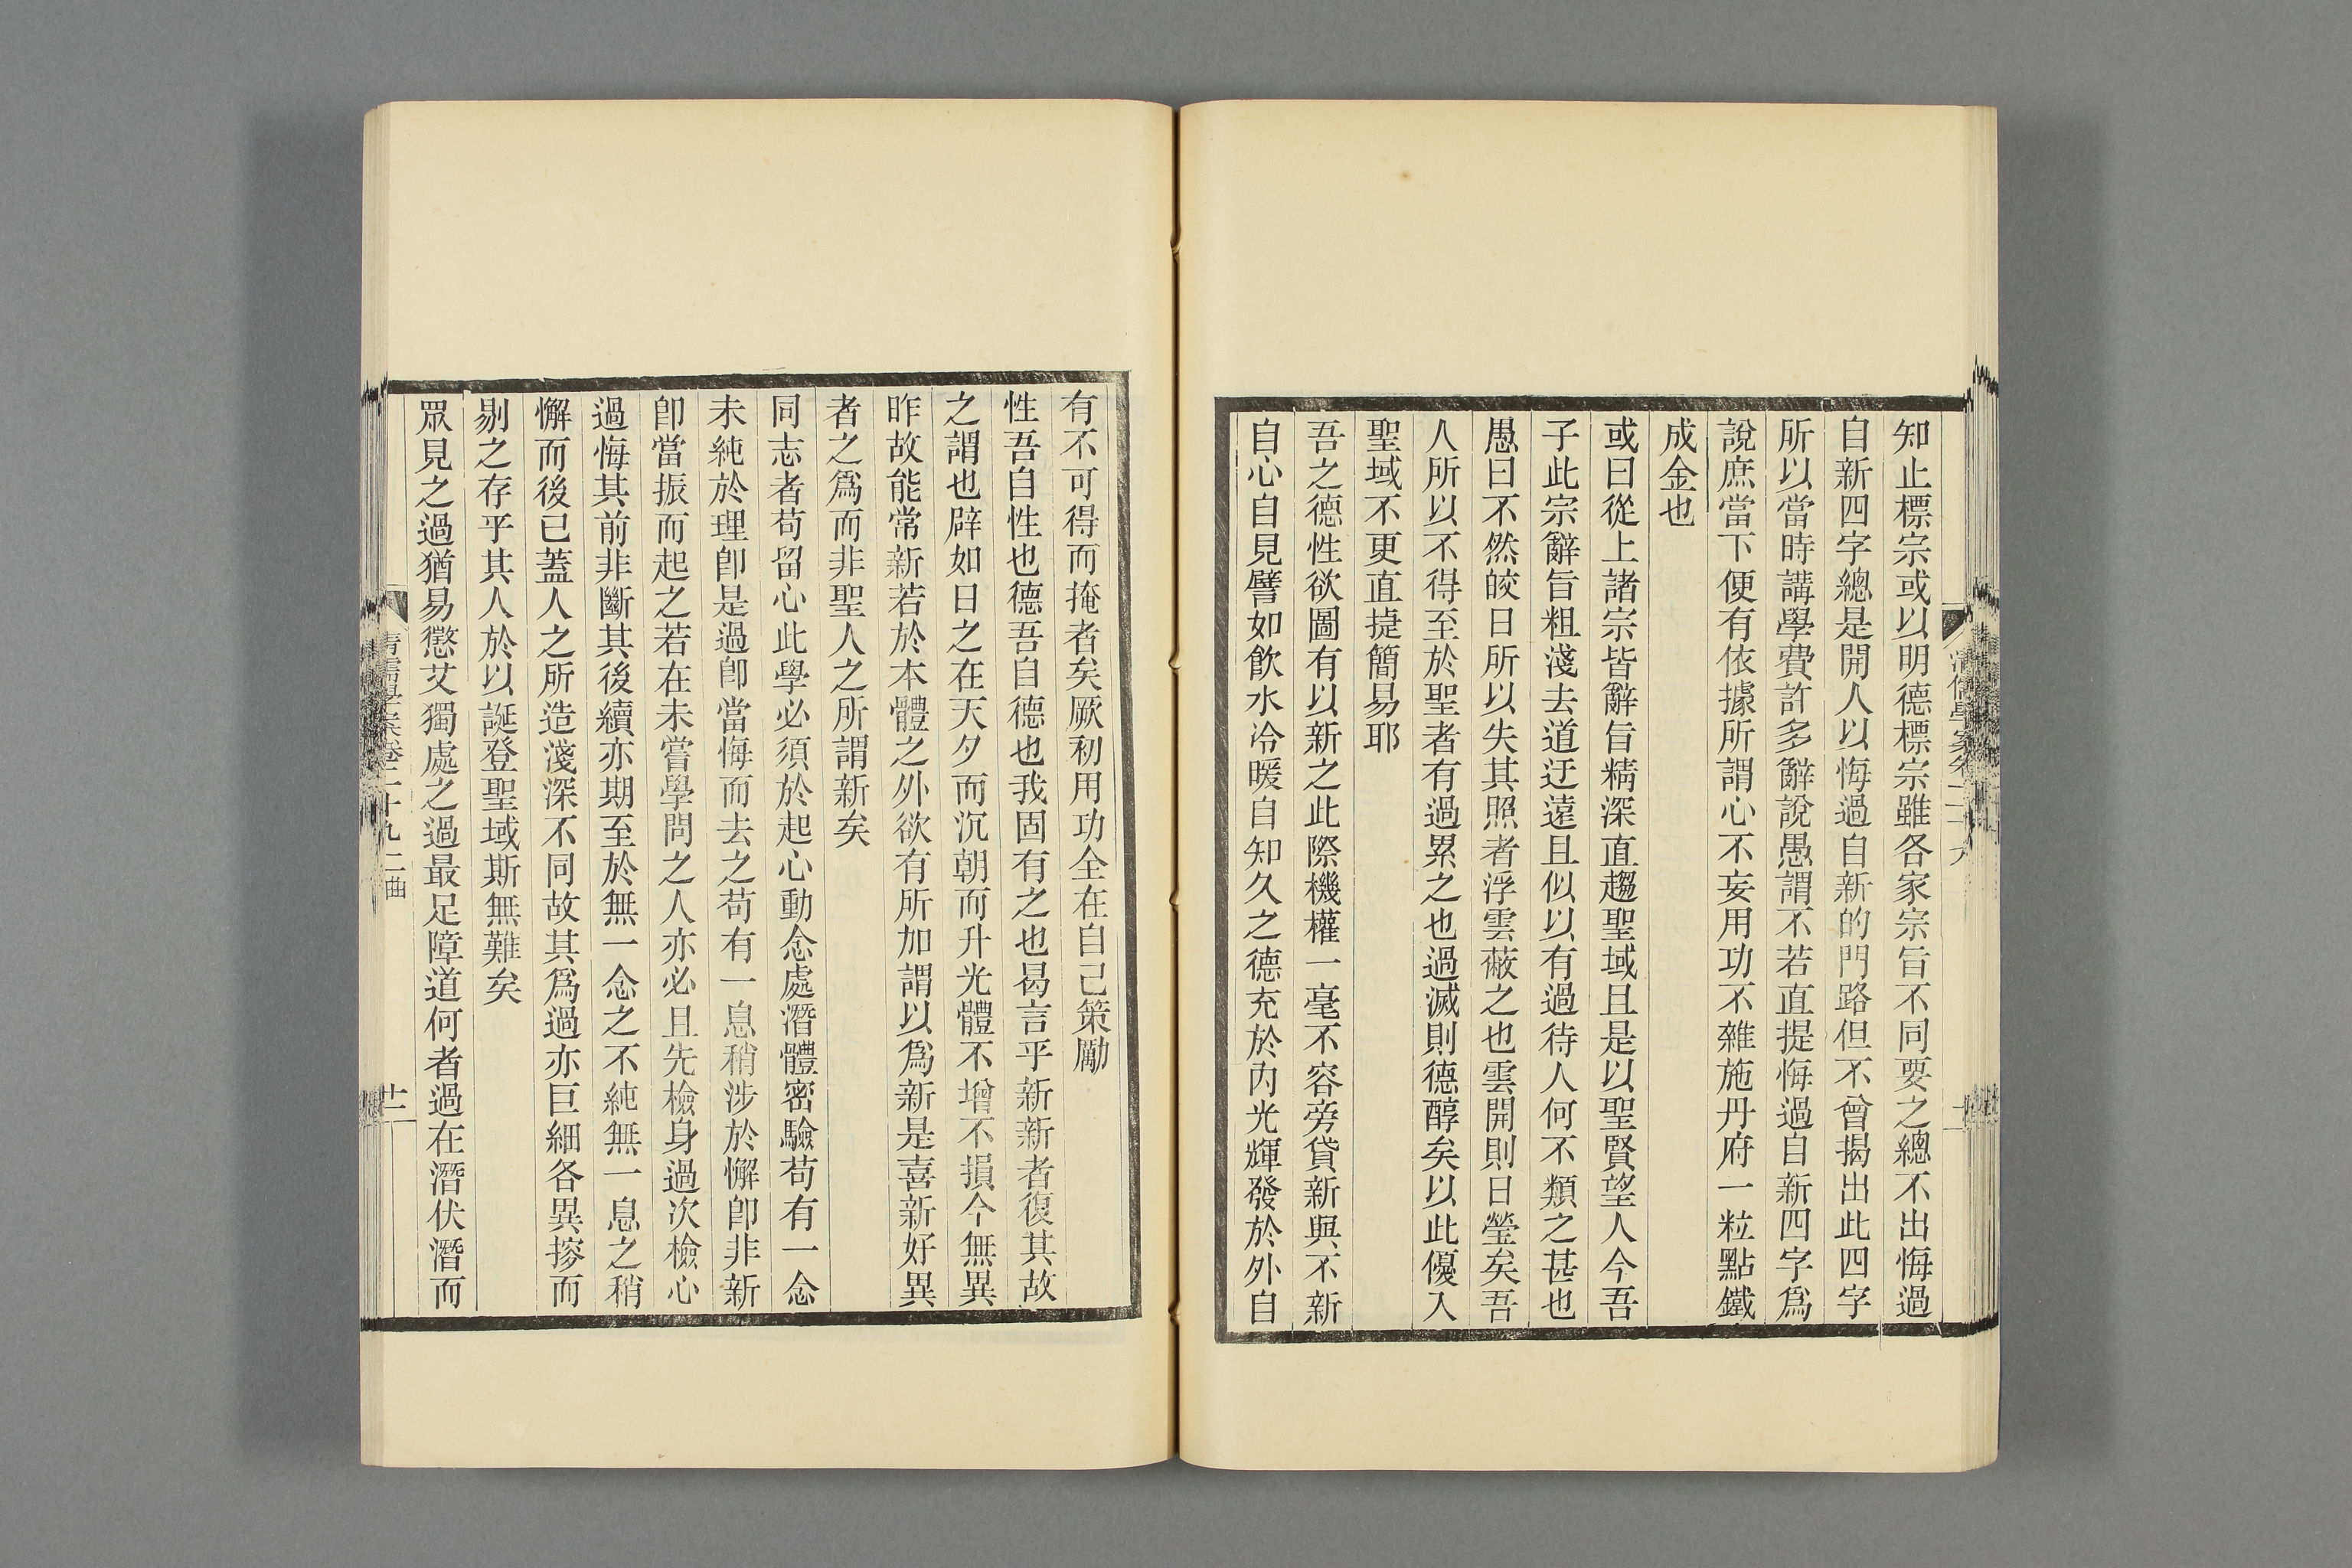 知止標宗或以明德標宗雖各家宗旨不同要之總不出悔過
自新四字總是開人以悔過自新的門路但不曾揭出此四字
所以當時講學費許多辭說愚謂不若直提悔過自新四字爲
說庶當下便有依據所謂心不妄用功不雜施丹府一粒點鐵
成金也
或曰從上諸宗皆辭旨精深直趨聖域且是以聖賢望人今吾
子此宗辭旨粗淺去道迂遠且似以有過待人何不類之甚也
愚曰不然皎日所以失其照者浮雲蔽之也雲開則日瑩矣吾
人所以不得至於聖者有過累之也過滅則德醇矣以此優入
聖域不更直捷簡易耶
吾之德性欲圖有以新之此際機權一毫不容旁貸新與不新
自心自見譬如飲水冷暖自知久之德充於內光輝發於外自
有不可得而掩者矣厥初用功全在自己策勵
性吾自性也德吾自德也我固有之也曷言乎新新者復其故
之謂也辟如日之在天夕而沉朝而升光體不增不損今無異
昨故能常新若於本體之外欲有所加謂以爲新是喜新好異
者之爲而非聖人之所謂新矣
同志者苟留心此學必須於起心動念處潛體密驗苟有一念
未純於理卽是過卽當悔而去之苟有一息稍涉於懈卽非新
卽當振而起之若在未嘗學問之人亦必且先檢身過次檢心
過悔其前非斷其後續亦期至於無一念之不純無一息之稍
懈而後已蓋人之所造淺深不同故其爲過亦巨細各異搜而
剔之存乎其人於以誕登聖域斯無難矣
眾見之過猶易懲艾獨處之過最足障道何者過在潛伏潛而
清儒學案卷二十九二曲
廿一